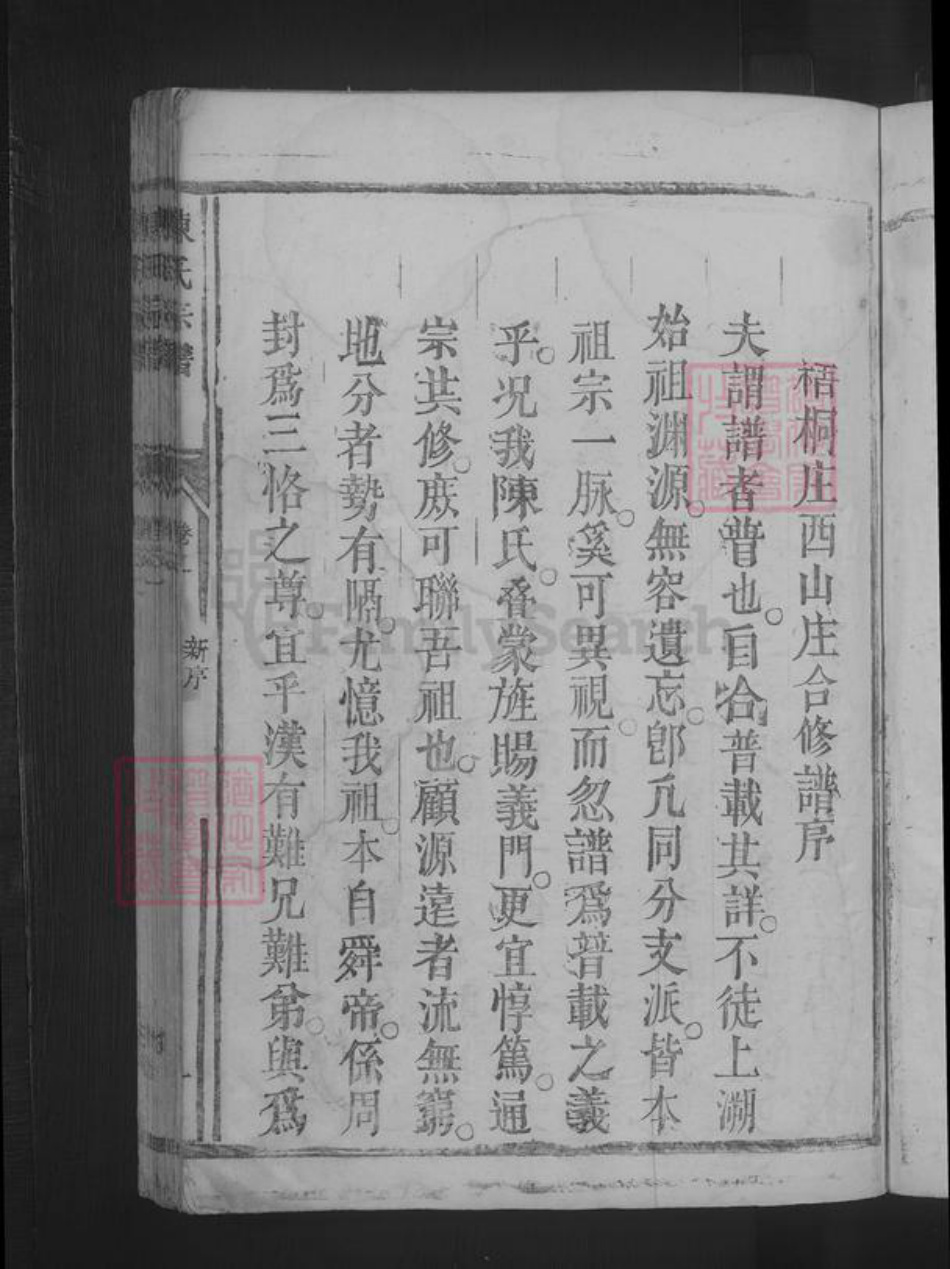 梧桐庄西山庄合修譜序
夫謂譜者普也。自合普載其詳。不徒上溯
始祖渊源。無容遺忘。卽凢同分支派。皆本
祖宗一脉。奚可異視。而忽譜爲普載之義
乎。况我陳氏。叠蒙旌賜義門。更宜惇篤。通
宗共修。庻可聯吾祖也。顧源遠者流無窮。
地分者勢有隔。尤憶我祖。本自舜帝。係周
封爲三恪之尊。宜乎漢有難兄難弟。與爲
陳氏宗譜
卷一
新序
FamilySearch